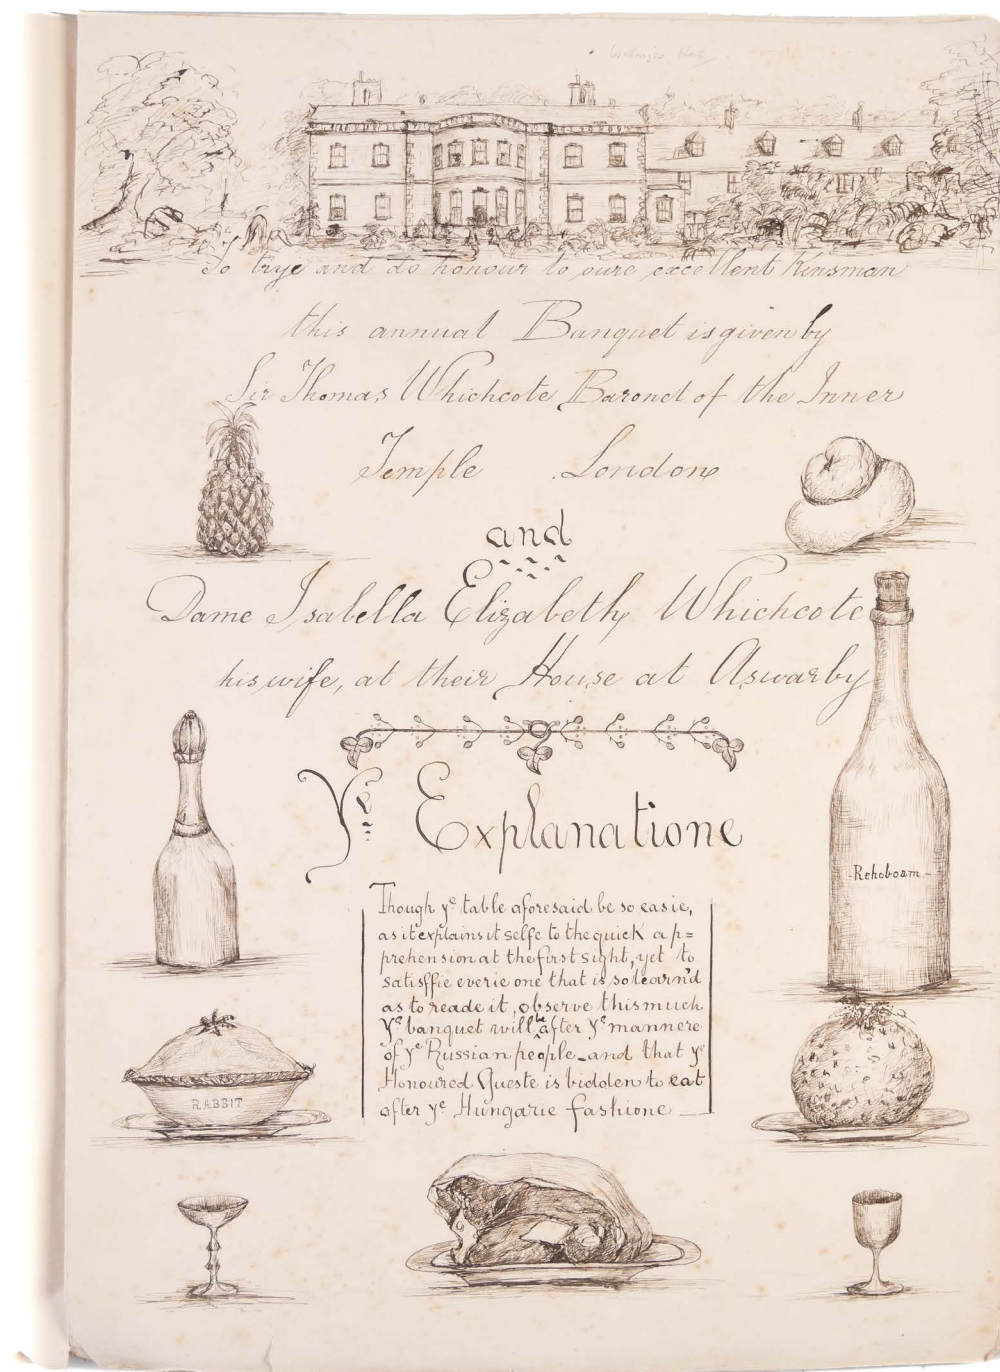 To trye and do honour to oure excellent Kinsman
this annual Banquet is given by
Sir Thomas Whichcote Baronet of the Inner
Temple London
and
Dame Isabella Elizabeth Whichcote
his wife, at their House at Aswarby
Ye Explanatione
Though ye table aforesaid be so easie,
as it explains it selfe to the quick ap=
prehension at the first sight, yet to
satisffie everie one that is so learn'd
as to reade it, observe this much
Ye banquet will be after Ye mannere
of ye Russian people and that ye
Honoured Gueste is bidden to eat
after ye Hungarie fashione
Rehoboam
RABBIT